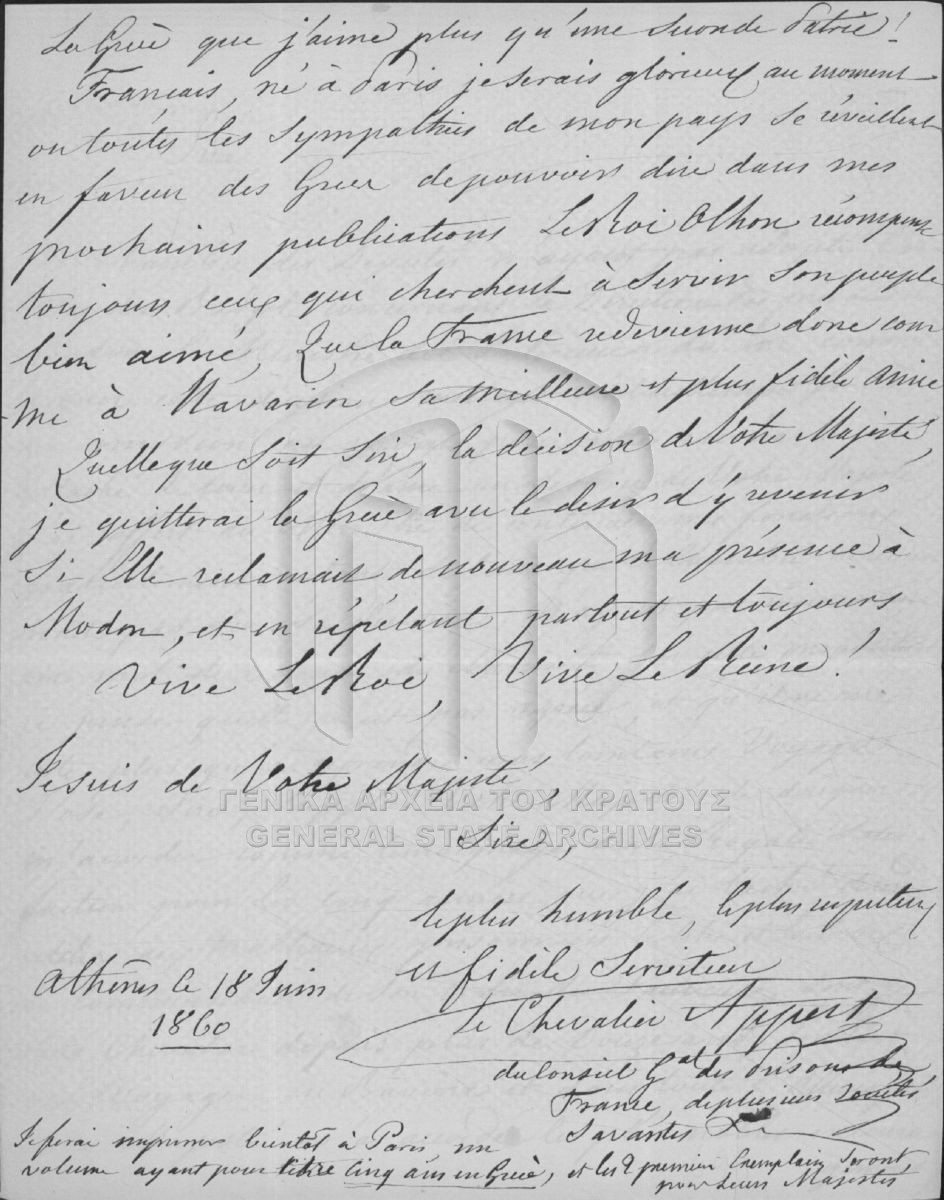 La Grèce que j'aime plus qu'une seconde Patrie!
Français, né à Paris je serais glorieux au moment
ou toutes les sympathies de mon pays se réveillent
en faveur des Grecs de pouvoir dire dans mes
prochaines publications Le Roi Othon récompense
toujours ceux qui cherchent à servir son peuple
bien aimé, Que la France redevienne donc com
-me à Navarin sa meilleure et plus fidèle amie
Quelleque soit Sire, la décision de Votre Majesté,
je quitterai la Grèce avec le desir d'y revenir
si Elle reclamait de nouveau ma présence à
Modon, et en répétant partout et toujours
Vive Le Roi, Vive La Reine!
Je suis de Votre Majesté,
ΓΕΝΙΚΑ ΑΡΧΕΙΑ ΤΟΥ ΚΡΑΤΟΥΣ
GENERAL STATE ARCHIVES
Sire,
le plus humble, le plus respectueux
et fidèle Serviteur
Le Chevalier Appert
du Conseil Gal des Prisons de
France, de plusieurs Sociétés
Savantes
Athènes le 18 Juin
1860
Je ferai imprimer bientôt à Paris, un
volume ayant pour titre Cinq ans en Grèce, et les 2 premiers Exemplaires seront
pour Leurs Majestés